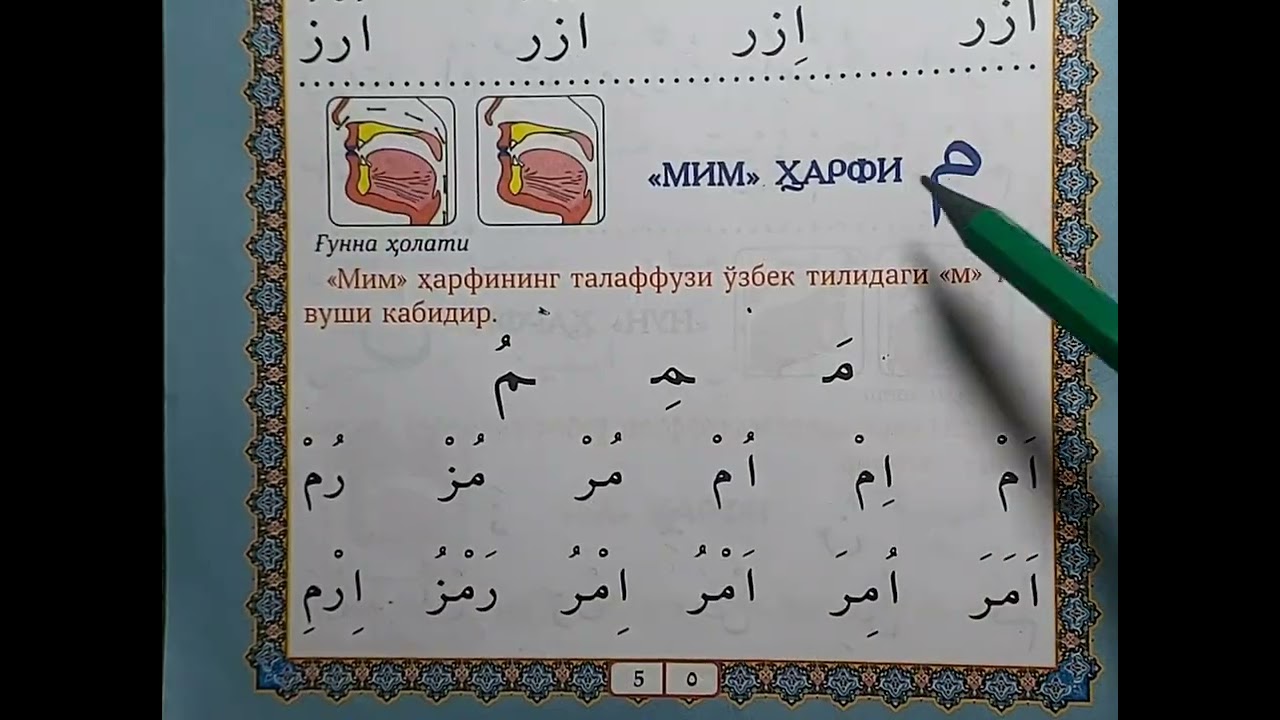 ازر اِزر ازر ارز
«МИМ» ҲАРФИ م
Ғунна ҳолати
«Мим» ҳарфининг талаффузи ўзбек тилидаги «м»
вуши кабидир.
مَ مِ مُ
اَمْ اِمْ اُمْ مُرْ مُزْ رُمْ
اَمَرَ اُمِرَ اَمْرُ اِمْرُ رَمْزُ اِرْمِ
5 ٥